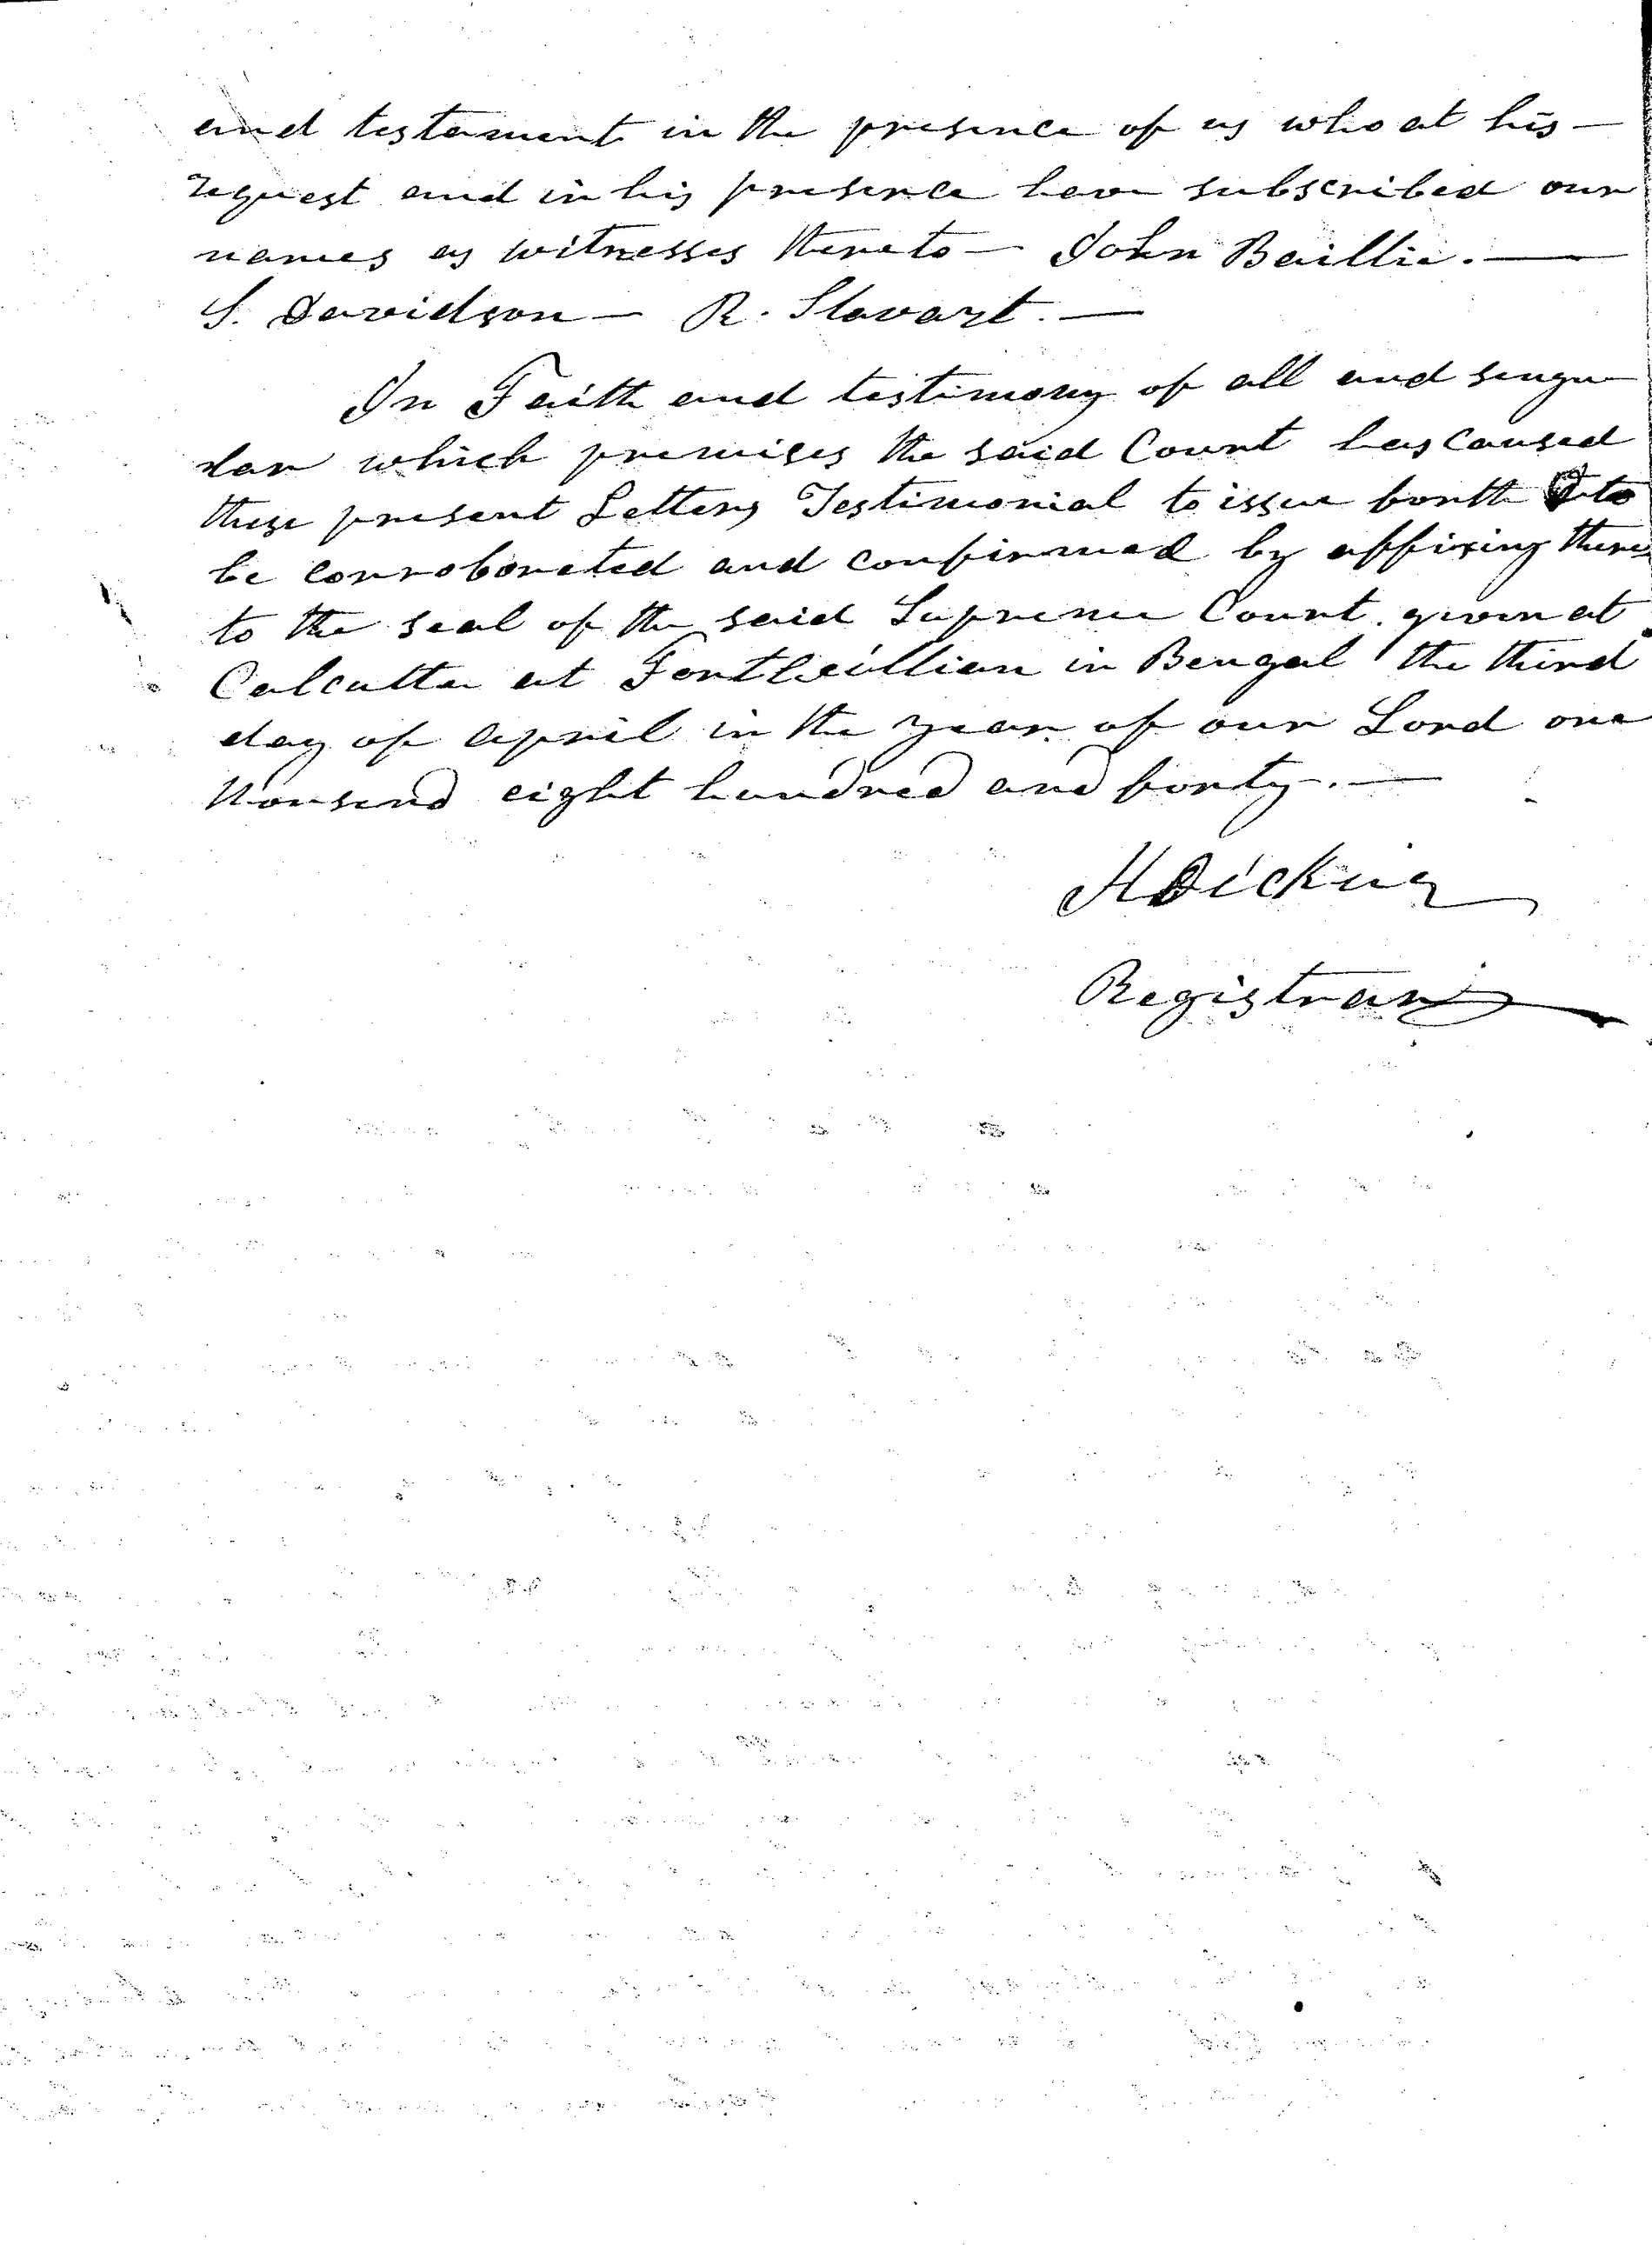 and testament in the presence of us who at his —
request and in his presence have subscribed our
names as witnesses thereto — John Baillie. —
S. Davidson — R. Stavart. —
In Faith and testimony of all and singu-
lar which premises the said Court has caused
these present Letters Testimonial to issue forth & to
be corroborated and confirmed by affixing there
to the seal of the said Supreme Court. given at
Calcutta at Fort William in Bengal the third
day of April in the year of our Lord one
thousand eight hundred and forty. —
H Dickins
Registrar